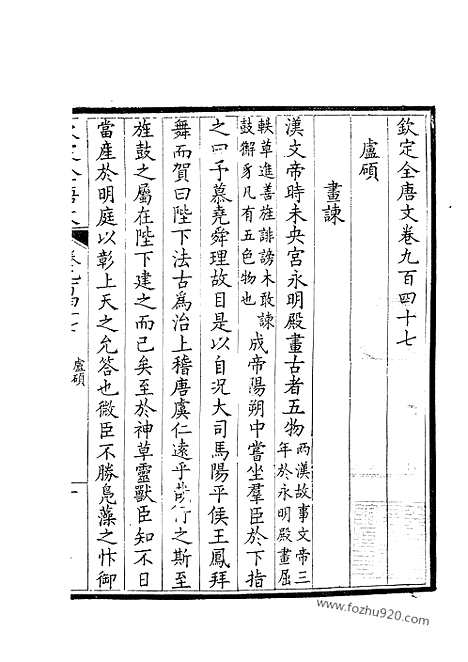 欽定全唐文卷九百四十七
盧碩
畫諫
漢文帝時未央宮永明殿畫古者五物兩漢故事文帝三年於永明殿畫屈
軼草進善旌誹謗木敢諫鼓獬豸凡有五色物也成帝陽朔中嘗坐羣臣於下指
之曰予慕堯舜理故目是以自況大司馬陽平侯王鳳拜
舞而賀曰陛下法古為治上稽唐虞仁遠乎哉行之斯至
旌鼓之屬在陛下建之而已矣至於神草靈獸臣知不日
當産於明庭以彰上天之允答也微臣不勝鳧藻之忭御
欽定全唐文 卷九百四十七 盧碩 一
www.fozhu920.com